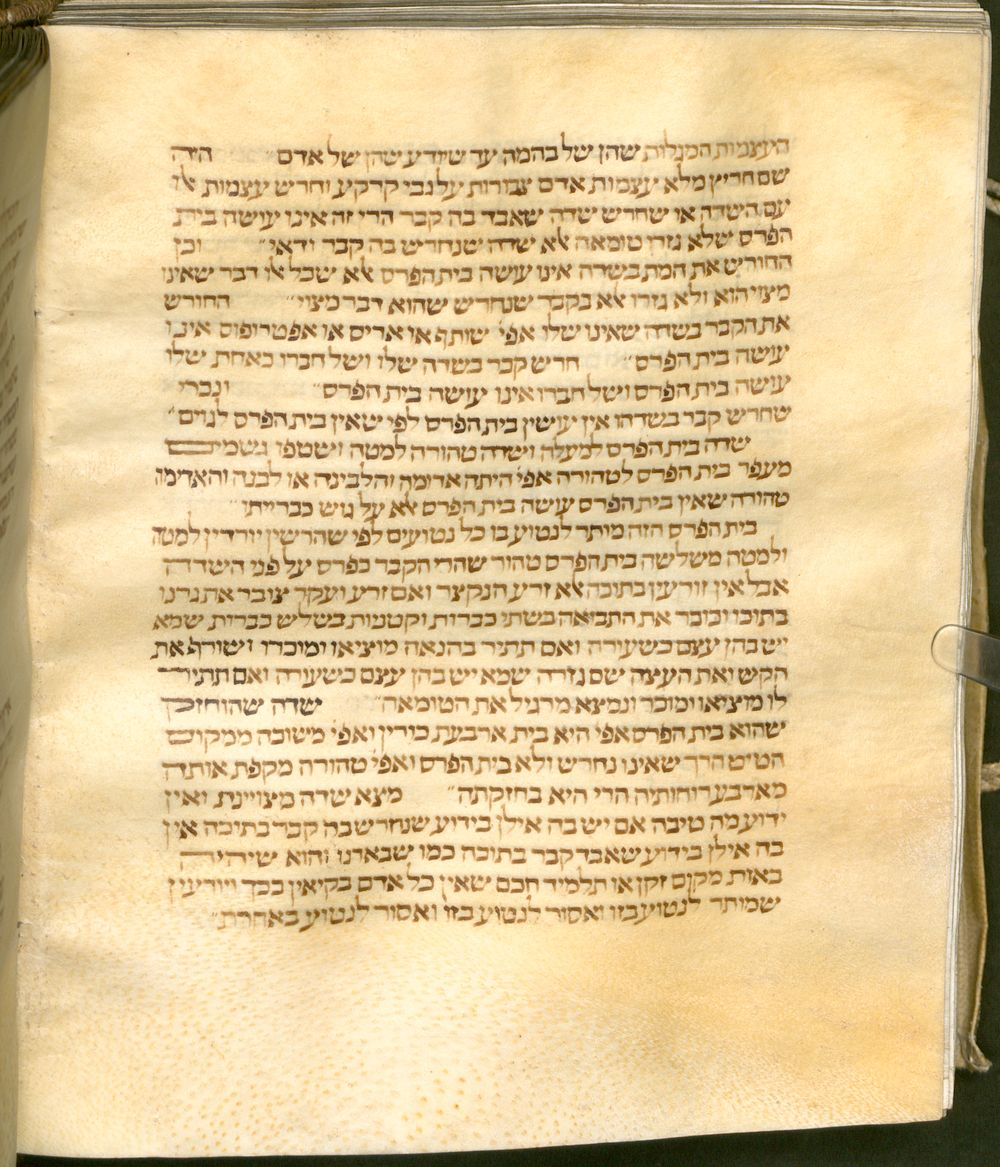 העצמות המגלות שהן של בהמה עד שיודע שהן של אדם היה
שם חריץ מלא עצמות אדם צבורות על גבי קרקע וחרש עצמות אלו
עם השדה או שחרש שדה שאבד בה קבר הרי זה אינו עושה בית
הפרס שלא גזרו טומאה אלא שדה שנחרש בה קבר ודאי וכן
החורש את המת בשדה אינו עושה בית הפרס אלא שכל אלו דבר שאינו
מצוי הוא ולא גזרו אלא בקבר שנחרש שהוא דבר מצוי החורש
את הקבר בשדה שאינו שלו אפי׳ שותף או אריס או אפטרופוס אינו
עושה בית הפרס חרש קבר בשדה שלו ושל חברו כאחת שלו
עושה בית הפרס ושל חברו אינו עושה בית הפרס ונכרי
שחרש קבר בשדהו אין עושין בית הפרס לפי שאין בית הפרס לגוים
שדה בית הפרס למעלה ושדה טהורה למטה ושטפו גשמים
מעפר בית הפרס לטהורה אפי׳ היתה אדומה והלבינה או לבנה והאדימה
טהורה שאין בית הפרס עושה בית הפרס אלא על גוש כברייתו
בית הפרס הזה מותר לנטוע בו כל נטועים לפי שהרשין יורדין למטה
ולמטה משלשה בית הפרס טהור שהרי הקבר נפרס על פני השדה
אבל אין זורעין בתוכה אלא זרע הנקצר ואם זרע ועקר צובר את גרנו
בתוכו וכובר את התבואה בשתי כברות וקטניות בשלש כברות שמא
יש בהן עצם כשעורה ואם תתיר בהנאה מוציאו ומוכרו ושורף את
הקש ואת העצה שם גזרה שמא יש בהן עצם כשעורה ואם תתיר
לו מוציאו ומוכר ונמצא מרגיל את הטומאה שדה שהוחזק
שהוא בית הפרס אפי׳ היא בית ארבעת כורין ואפי׳ משובה ממקום
הטיט הרך שאינו נחרש ולא בית הפרס ואפי׳ טהורה מקפת אותה
מארבע רוחותיה הרי היא בחזקתה מצא שדה מצויינת ואין
ידוע מה טיבה אם יש בה אילן בידוע שנחרש בה קבר בתוכה אין
בה אילן בידוע שאבד קבר בתוכה כמו שבארנו והוא שיהיה
באות מקום זקן או תלמיד חכם שאין כל אדם בקיאין בכך ויודעין
שמותר לנטוע בזו ואסור לנטוע בזו ואסור לנטוע באחרת